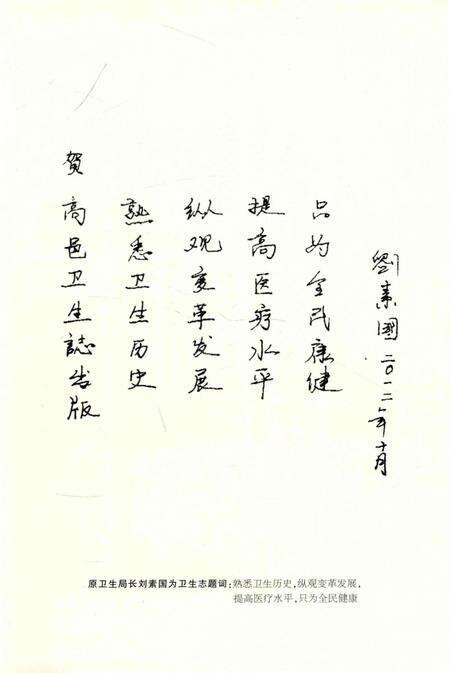 贺高邑卫生誌出版
熟悉卫生历史
纵观变革发展
提高医疗水平
只为全民康健
劉素國二〇一二年十月
原卫生局长刘素国为卫生志题词：熟悉卫生历史，纵观变革发展，
提高医疗水平，只为全民健康